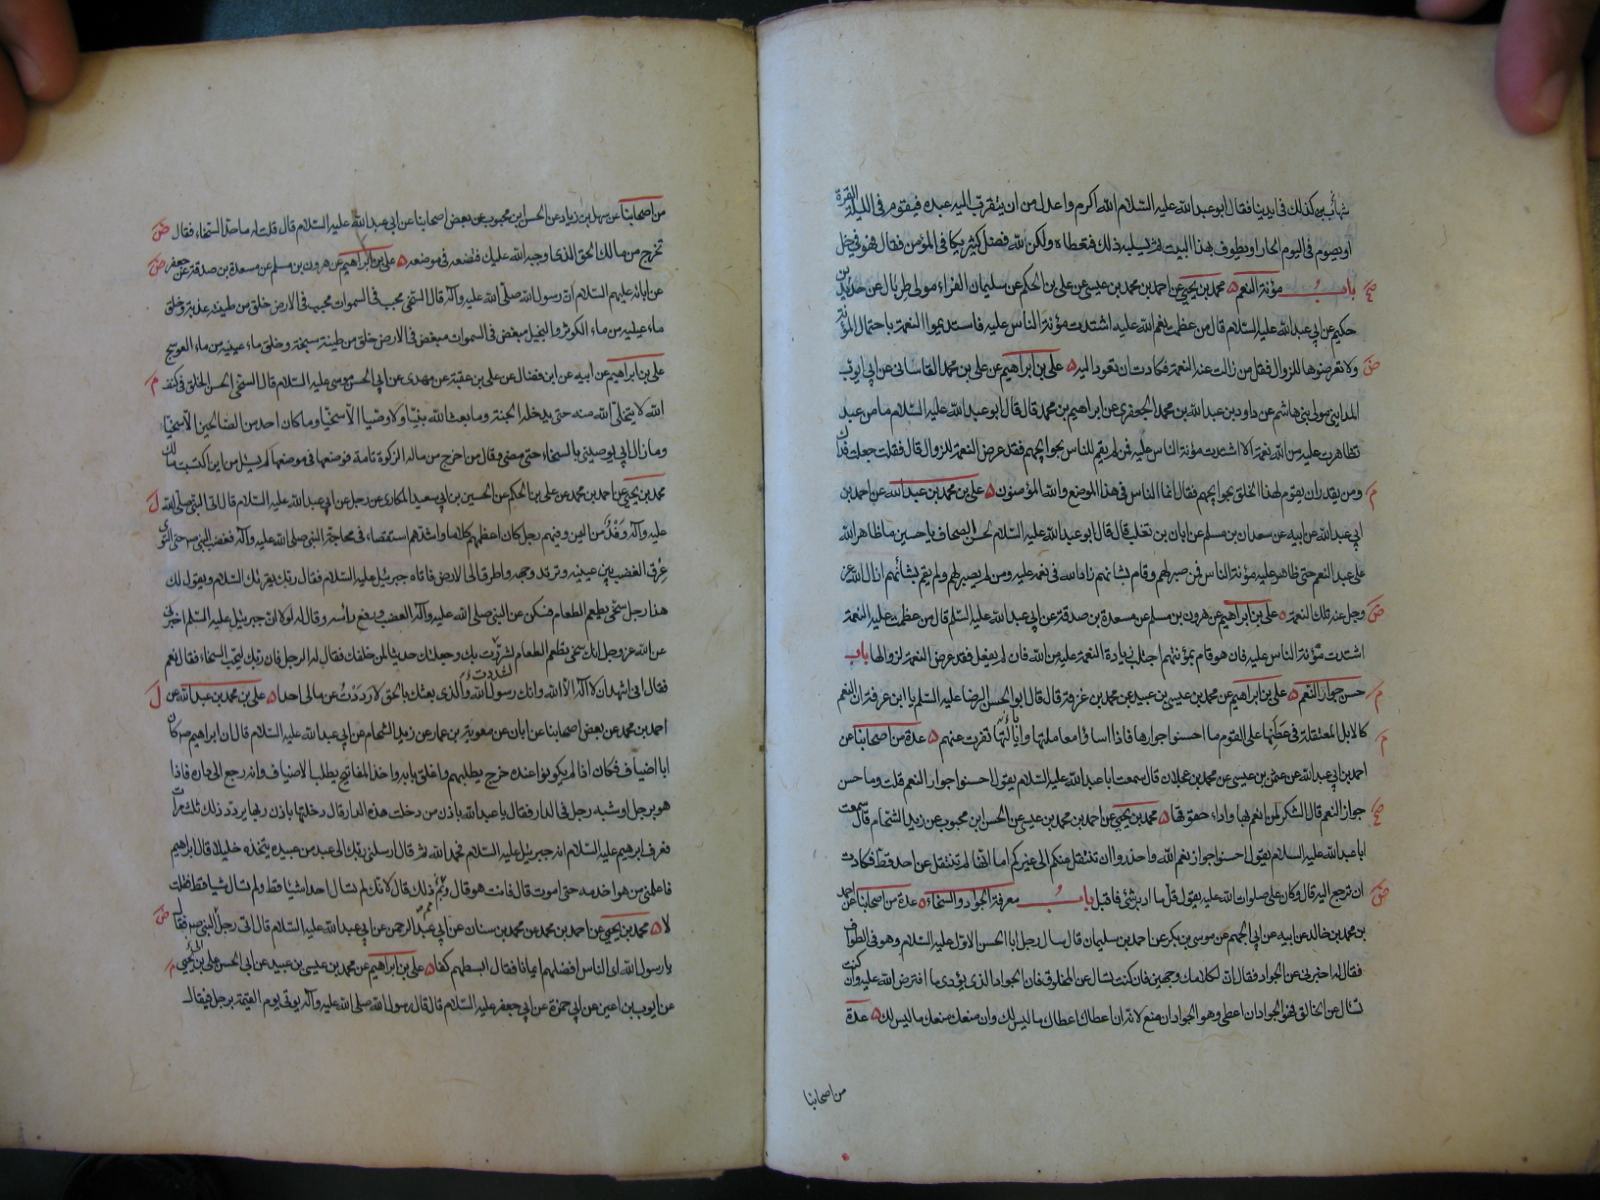 شهاب بن كذلك في ايدينا فقال ابو عبد الله عليه السلام الله اكرم واعدل من ان يتقرب اليه عبده فيقوم في الليلة القرة
او يصوم في اليوم الحار او يطوف بهذا البيت ثم يسلبه ذلك فتعطاه ولكن لله فضل كثير يكافي المؤمن فقال فهو في حل
باب مؤنة النعم محمد بن يحيى عن احمد بن محمد بن عيسى عن علي بن الحكم عن سليمان الفراء مولى طربال عن حديد بن
حكيم عن ابي عبد الله عليه السلام قال من عظمت نعم الله عليه اشتدت مؤنة الناس عليه فاستديموا النعمة باحتمال المؤنة
ولا تعرضوها للزوال فقل من زالت عنه النعمة فكادت ان تعود اليه علي بن ابراهيم عن علي بن محمد القاساني عن ابي ايوب
المدايني مولى بني هاشم عن داود بن عبد الله بن محمد الجعفري عن ابراهيم بن محمد قال قال ابو عبد الله عليه السلام ما من عبد
تظاهرت عليه من الله نعمة الا اشتدت مؤنة الناس عليه فمن لم يقم للناس بحوايجهم فقد عرض النعمة للزوال قال فقلت جعلت فداك
ومن يقدر ان يقوم لهذا الخلق بحوايجهم فقال انما الناس في هذا الموضع والله المؤمنون علي بن محمد بن عبد الله عن احمد بن
ابي عبد الله عن ابيه عن سعدان بن مسلم عن ابان بن تغلب قال قال ابو عبد الله عليه السلام لحسن الصحاف يا حسين ما ظاهر الله
على عبد النعم حتى ظاهر عليه مؤنة الناس فمن صبر لهم وقام بشانهم زاده الله في نعمه عليه ومن لم يصبر لهم ولم يقم بشأنهم ازال الله عز
وجل عنه تلك النعمة علي بن ابراهيم عن هرون بن مسلم عن مسعدة بن صدقة عن ابي عبد الله عليه السلم قال من عظمت عليه النعمة
اشتدت مؤنة الناس عليه فان هو قام بمؤنتهم اجتلب زيادة النعمة عليه من الله فان لم يفعل فقد عرض النعمة لزوالها باب
حسن جوار النعم علي بن ابراهيم عن محمد بن عيسى بن عبيد عن محمد بن عرفة قال قال ابو الحسن الرضا عليه السلم يا ابن عرفة ان النعم
كالابل المعتقلة في عطنها على القوم ما احسنوا جوارها فاذا اساؤا معاملتها وايالتها نفرت عنهم عدة من اصحابنا عن
احمد بن ابي عبد الله عن عثمن بن عيسى عن محمد بن عجلان قال سمعت ابا عبد الله عليه السلام يقول احسنوا جوار النعم قلت وما حسن
جوار النعم قال الشكر لمن انعم بها واداء حقوقها محمد بن يحيى عن احمد بن محمد بن عيسى عن الحسن ابن محبوب عن زيد الشحام قال سمعت
ابا عبد الله عليه السلام يقول احسنوا جوار نعم الله واحذروا ان تنتقل منكم الى غيركم اما انها لم تنتقل عن احد قط فكادت
ان ترجع اليه قال وكان علي صلوات الله عليه يقول قل ما ادبر شئ فاقبل باب معرفة الجود والسخاء عدة من اصحابنا عن احمد
بن محمد بن خالد عن ابيه عن ابي الجهم عن موسى بن بكر عن احمد بن سليمان قال سال رجل ابا الحسن الاول عليه السلام وهو في الطواف
فقال له اخبرني عن الجواد فقال ان لكلامك وجهين فان كنت تسال عن المخلوق فان الجواد الذي يؤدي ما افترض الله عليه وان كنت
تسال عن الخالق فهو الجواد ان اعطى وهو الجواد ان منع لانه ان اعطاك اعطاك ما ليس لك وان منعك منعك ما ليس لك عدة
من اصحابنا
من اصحابنا عن سهل بن زياد عن الحسن ابن محبوب عن بعض اصحابنا عن ابي عبد الله عليه السلام قال قلت له ما حد السخاء فقال
تخرج من مالك الحق الذي اوجبه الله عليك فتضعه في موضعه علي بن ابراهيم عن هرون بن مسلم عن مسعدة بن صدقة عن جعفر
عن ابائه عليهم السلام ان رسول الله صلى الله عليه وآله قال السخي محبب في السموات محبب في الارض خلق من طينة عذبة وخلق
ماء عينيه من ماء الكوثر والبخيل مبغض في السموات مبغض في الارض خلق من طينة سبخة وخلق ماء عينيه من ماء العوسج
علي بن ابراهيم عن ابيه عن ابن فضال عن علي بن عقبة عن مهدي عن ابي الحسن موسى عليه السلام قال السخي الحسن الخلق في كنف
الله لا يتخلى الله منه حتى يدخله الجنة وما بعث الله نبيا ولا وصيا الا سخيا وما كان احد من الصالحين الا سخيا
وما زال ابي يوصيني بالسخاء حتى مضى وقال من اخرج من ماله الزكوة تامة فوضعها في موضعها لم يسئل من اين اكتسبت مالك
محمد بن يحيى عن احمد بن محمد عن علي بن الحكم عن الحسين بن ابي سعيد المكاري عن رجل عن ابي عبد الله عليه السلام قال اتى النبي صلى الله
عليه وآله وفد من اليمن وفيهم رجل كان اعظمهم كلاما واشدهم استقصاء في محاجة النبي صلى الله عليه وآله فغضب النبي ص حتى التوى
عرق الغضب بين عينيه وتربد وجهه واطرق الى الارض فاتاه جبرئيل عليه السلام فقال ربك يقرئك السلام ويقول لك
هذا رجل سخي يطعم الطعام فسكن عن النبي صلى الله عليه وآله الغضب ورفع رأسه وقال له لولا ان جبرئيل عليه السلم اخبرني
عن الله عز وجل انك سخي تطعم الطعام لشردت بك وجعلتك حديثا لمن خلفك فقال له الرجل فان ربك ليحب السخاء فقال نعم
فقال اني اشهد ان لا اله الا الله وانك رسول الله والذي بعثك بالحق لا رددت عن مالي احدا علي بن محمد بن عبد الله عن
احمد بن محمد عن بعض اصحابنا عن ابان عن معوية بن عمار عن زيد الشحام عن ابي عبد الله عليه السلام قال ان ابراهيم ص كان
ابا اضياف فكان اذا لم يكونوا عنده خرج يطلبهم واغلق بابه واخذ المفاتيح يطلب الاضياف وانه رجع الى داره فاذا
هو برجل او شبه رجل في الدار فقال يا عبد الله باذن من دخلت هذه الدار قال دخلتها باذن ربها يردد ذلك ثلث مرات
فعرف ابرهيم عليه السلام انه جبرئيل عليه السلام فحمد الله ثم قال ارسلني ربك الى عبد من عبيده يتخذه خليلا قال ابراهيم
فاعلمني من هو اخدمه حتى اموت قال فانت هو قال ومم ذلك قال لانك لم تسال احدا شيئا قط ولم تسال شيا قط فقلت
لا محمد بن يحيى عن احمد بن محمد عن محمد بن سنان عن ابي عبد الرحمن عن ابي عبد الله عليه السلام قال اتى رجل النبي ص فقال
يا رسول الله اى الناس افضلهم ايمانا فقال ابسطهم كفا علي بن ابراهيم عن محمد بن عيسى بن عبيد عن ابي الحسن علي بن يحيى
عن ايوب بن اعين عن ابي حمزة عن ابي جعفر عليه السلام قال قال رسول الله صلى الله عليه وآله يوتى يوم القيمة برجل فيقال